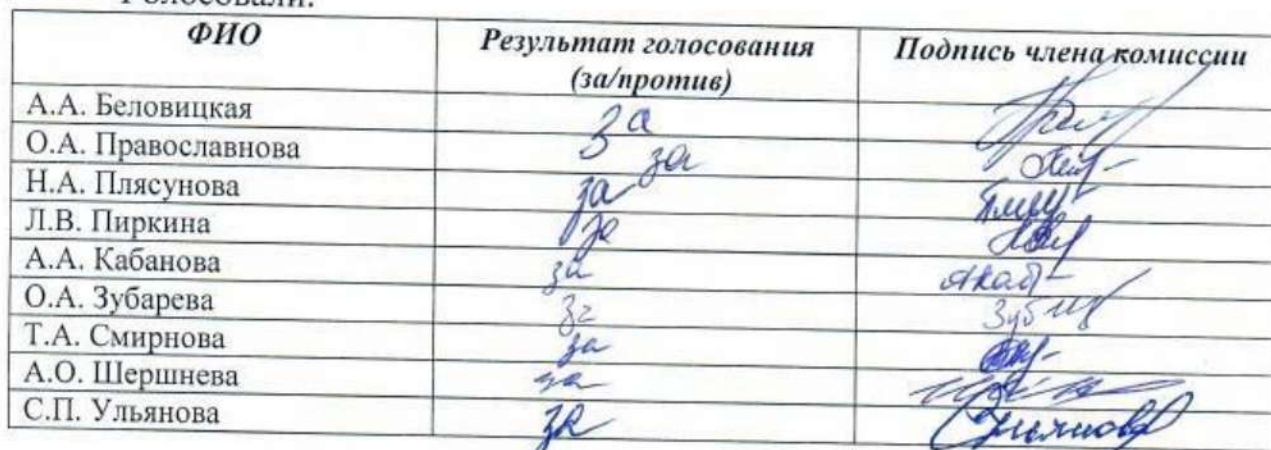 Голосовали:
ФИО Результат голосования Подпись члена комиссии
(за/против)
А.А. Беловицкая За
О.А. Православнова за
Н.А. Плясунова за
Л.В. Пиркина за
А.А. Кабанова за
О.А. Зубарева за
Т.А. Смирнова за
А.О. Шершнева за
С.П. Ульянова за